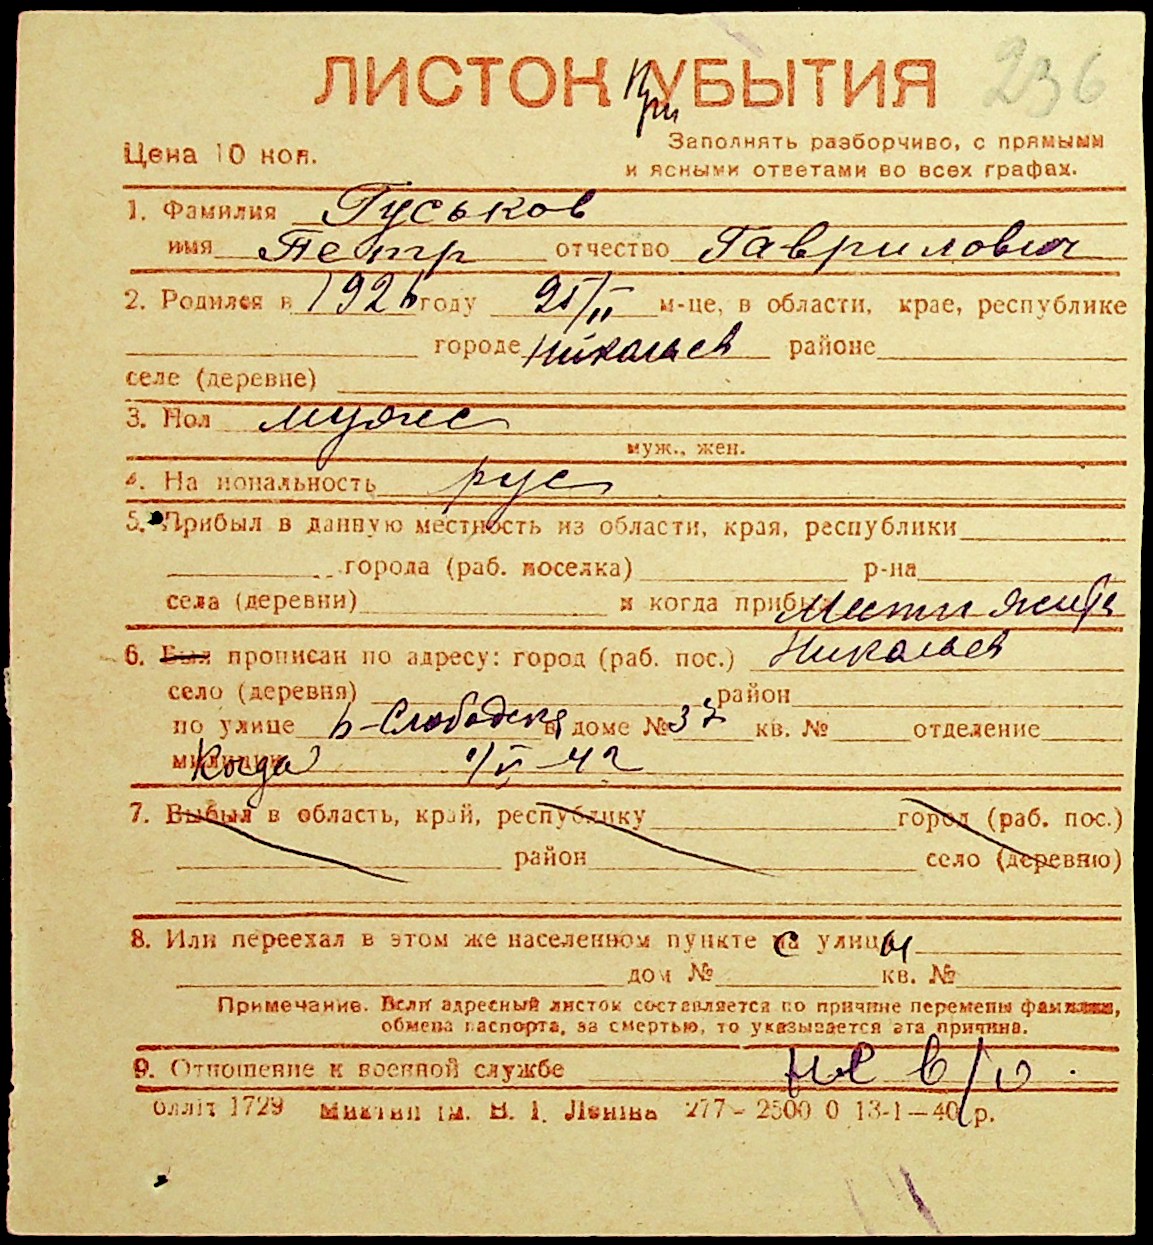 236
ЛИСТОК УБЫТИЯ
При
Цена 10 коп.
Заполнять разборчиво, с прямыми
и ясными ответами во всех графах.
1. Фамилия Гуськов
имя Петр отчество Гаврилович
2. Родился в 1926 году 25/II м-це, в области, крае, республике
городе Николаев районе
селе (деревне)
3. Пол мужс
муж., жен.
4. Национальность рус
5. Прибыл в данную местность из области, края, республики
города (раб. поселка) р-на
села (деревни) и когда прибыл
6. Был прописан по адресу: город (раб. пос.) Николаев
село (деревня) район
по улице в доме № 37 кв. № отделение
милиции Когда
7. Выбыл в область, край, республику город (раб. пос.)
район село (деревню)
8. Или переехал в этом же населенном пункте с улицы
дом № кв. №
Примечание. Если адресный листок составляется по причине перемены фамилии,
обмена паспорта, за смертью, то указывается эта причина.
9. Отношение к военной службе не в/о
блліт 1729 ім. В. І. Леніна 277 — 2500 0 13-1—40 р.